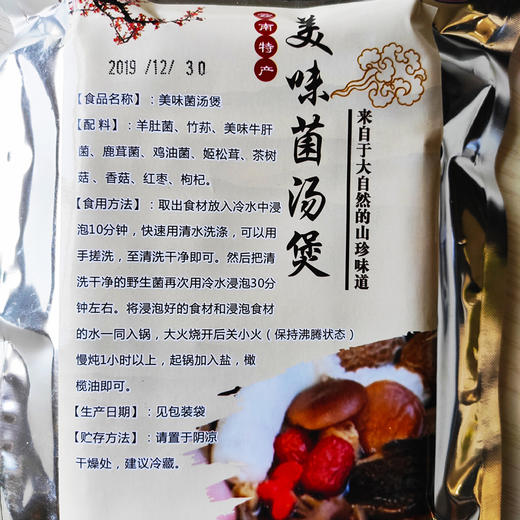 云南特产
美味菌汤煲
来自于大自然的山珍味道
2019 /12/ 30
【食品名称】：美味菌汤煲
【配 料】：羊肚菌、竹荪、美味牛肝
菌、鹿茸菌、鸡油菌、姬松茸、茶树
菇、香菇、红枣、枸杞。
【食用方法】：取出食材放入冷水中浸
泡10分钟，快速用清水洗涤，可以用
手搓洗，至清洗干净即可。然后把清
洗干净的野生菌再次用冷水浸泡30分
钟左右。将浸泡好的食材和浸泡食材
的水一同入锅，大火烧开后关小火（保持沸腾状态）
慢炖1小时以上，起锅加入盐，橄
榄油即可。
【生产日期】：见包装袋
【贮存方法】：请置于阴凉
干燥处，建议冷藏。